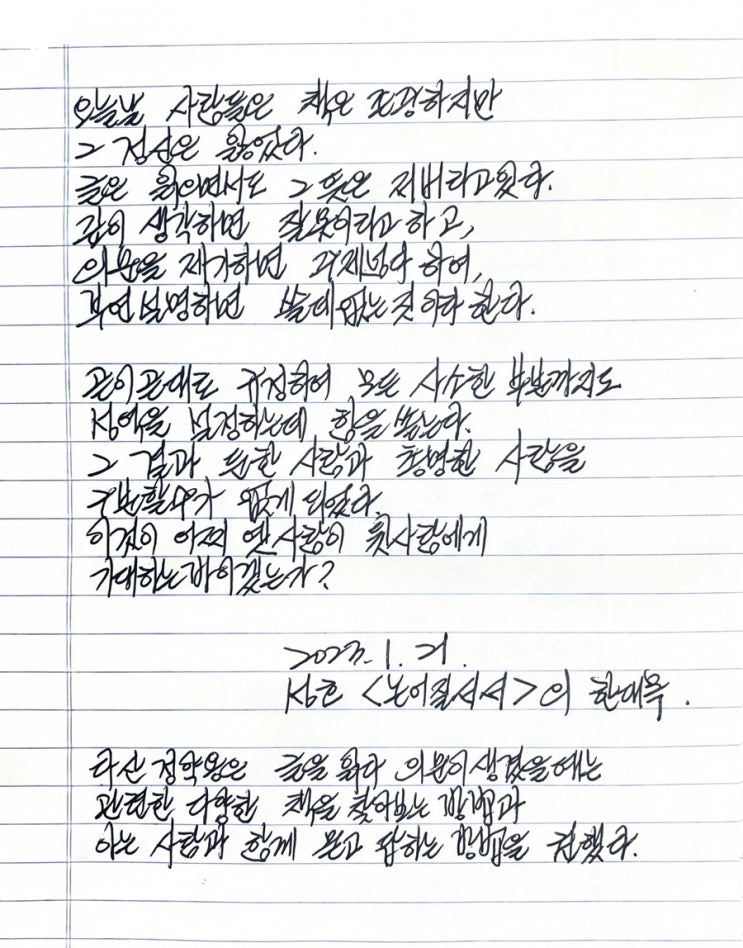 오늘날 사람들은 책은 존경하지만
그 정신은 잃었다.
글은 읽으면서도 그 뜻은 저버리고 있다.
깊이 생각하면 잘못이라고 하고,
의문을 제기하면 주제넘다 하며,
부연설명하면 쓸데없는 짓이라 한다.
곧이곧대로 규정하여 모든 사소한 부분까지도
성역을 설정하는데 힘을 쏟는다.
그 결과 둔한 사람과 총명한 사람을
구분할 수가 없게 되었다.
이것이 어찌 옛사람이 훗사람에게
기대하는 바이겠는가?
2023. 1. 21.
성호 <논어질서서>의 한대목.
다산 정약용은 글을 읽다 의문이 생겼을 때는
관련한 다양한 책을 찾아보는 방법과
아는 사람과 함께 묻고 답하는 방법을 권했다.